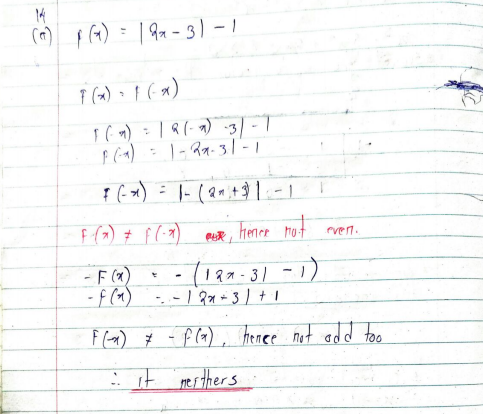 14
(a) f(x) = |2x - 3| - 1
f(x) = f(-x)
f(-x) = |2(-x) - 3| - 1
f(-x) = |-2x - 3| - 1
f(-x) = |-(2x + 3)| - 1
f(x) ≠ f(-x) , hence not even.
-f(x) = -(|2x - 3| - 1)
-f(x) = -|2x - 3| + 1
f(-x) ≠ -f(x), hence not odd too
∴ it neithers